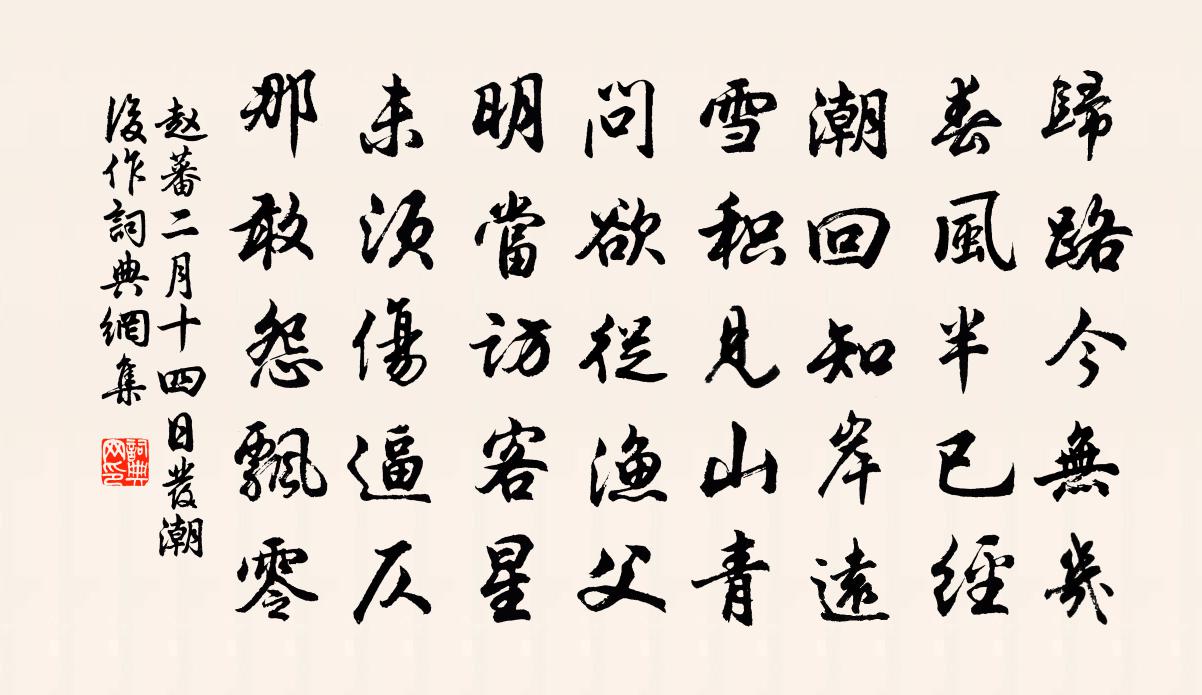 歸路今無幾
春風半已經
潮回知岸遠
雪积見山青
問欲從漁父
明當訪客星
未須傷逼仄
那敢怨飄零
赵蕃二月十四日發潮
後作詞典網集
詞典
网印